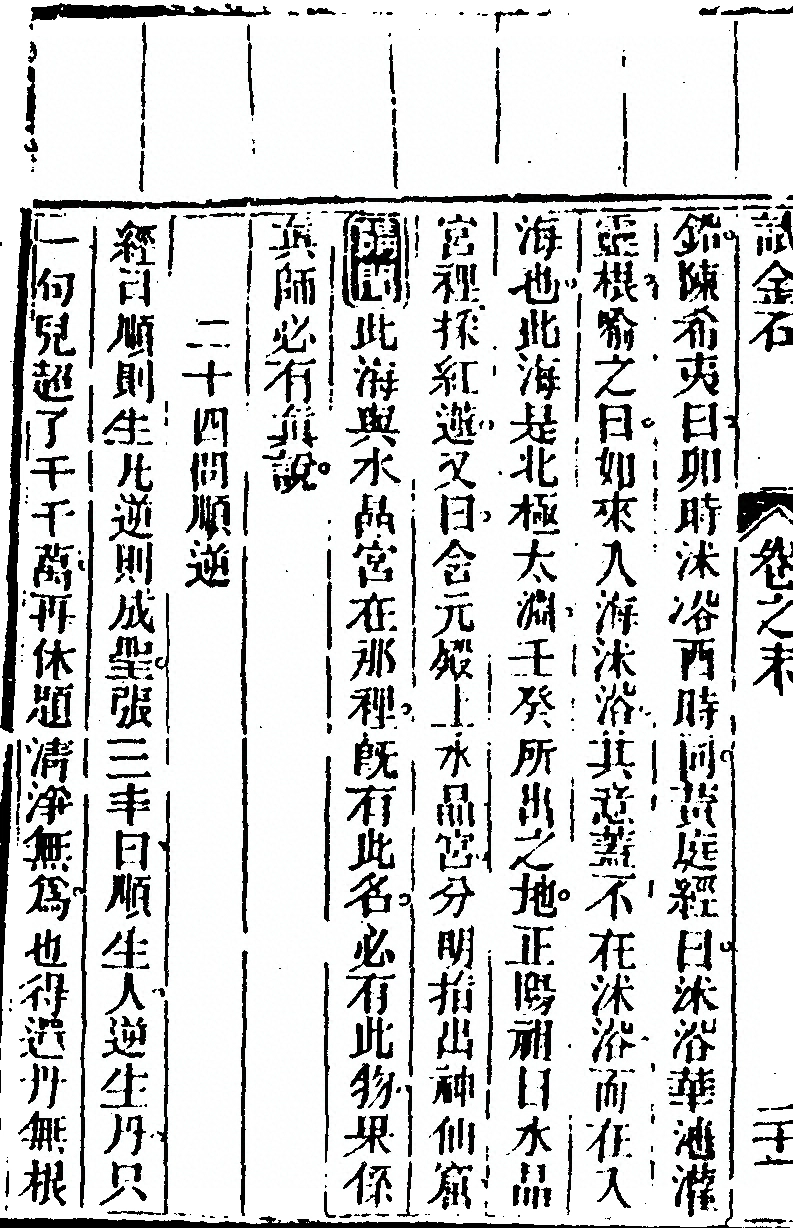 試金石 卷之末 二十一
鉛陳希夷曰卯時沐浴酉時同黃庭經曰沐浴華池灌
靈根喻之曰如來入海沐浴其意蓋不在沐浴而在入
海也此海是北極太淵壬癸所出之地正陽祖曰水晶
宮裡採紅蓮又曰含元殿上水晶宮分明指出神仙窟
此海與水晶宮在那裡既有此名必有此物果係
真師必有真說
二十四問順逆
經曰順則生凡逆則成聖張三丰曰順生人逆生丹只
一句兒超了千千萬再休題清淨無爲也得還丹無根